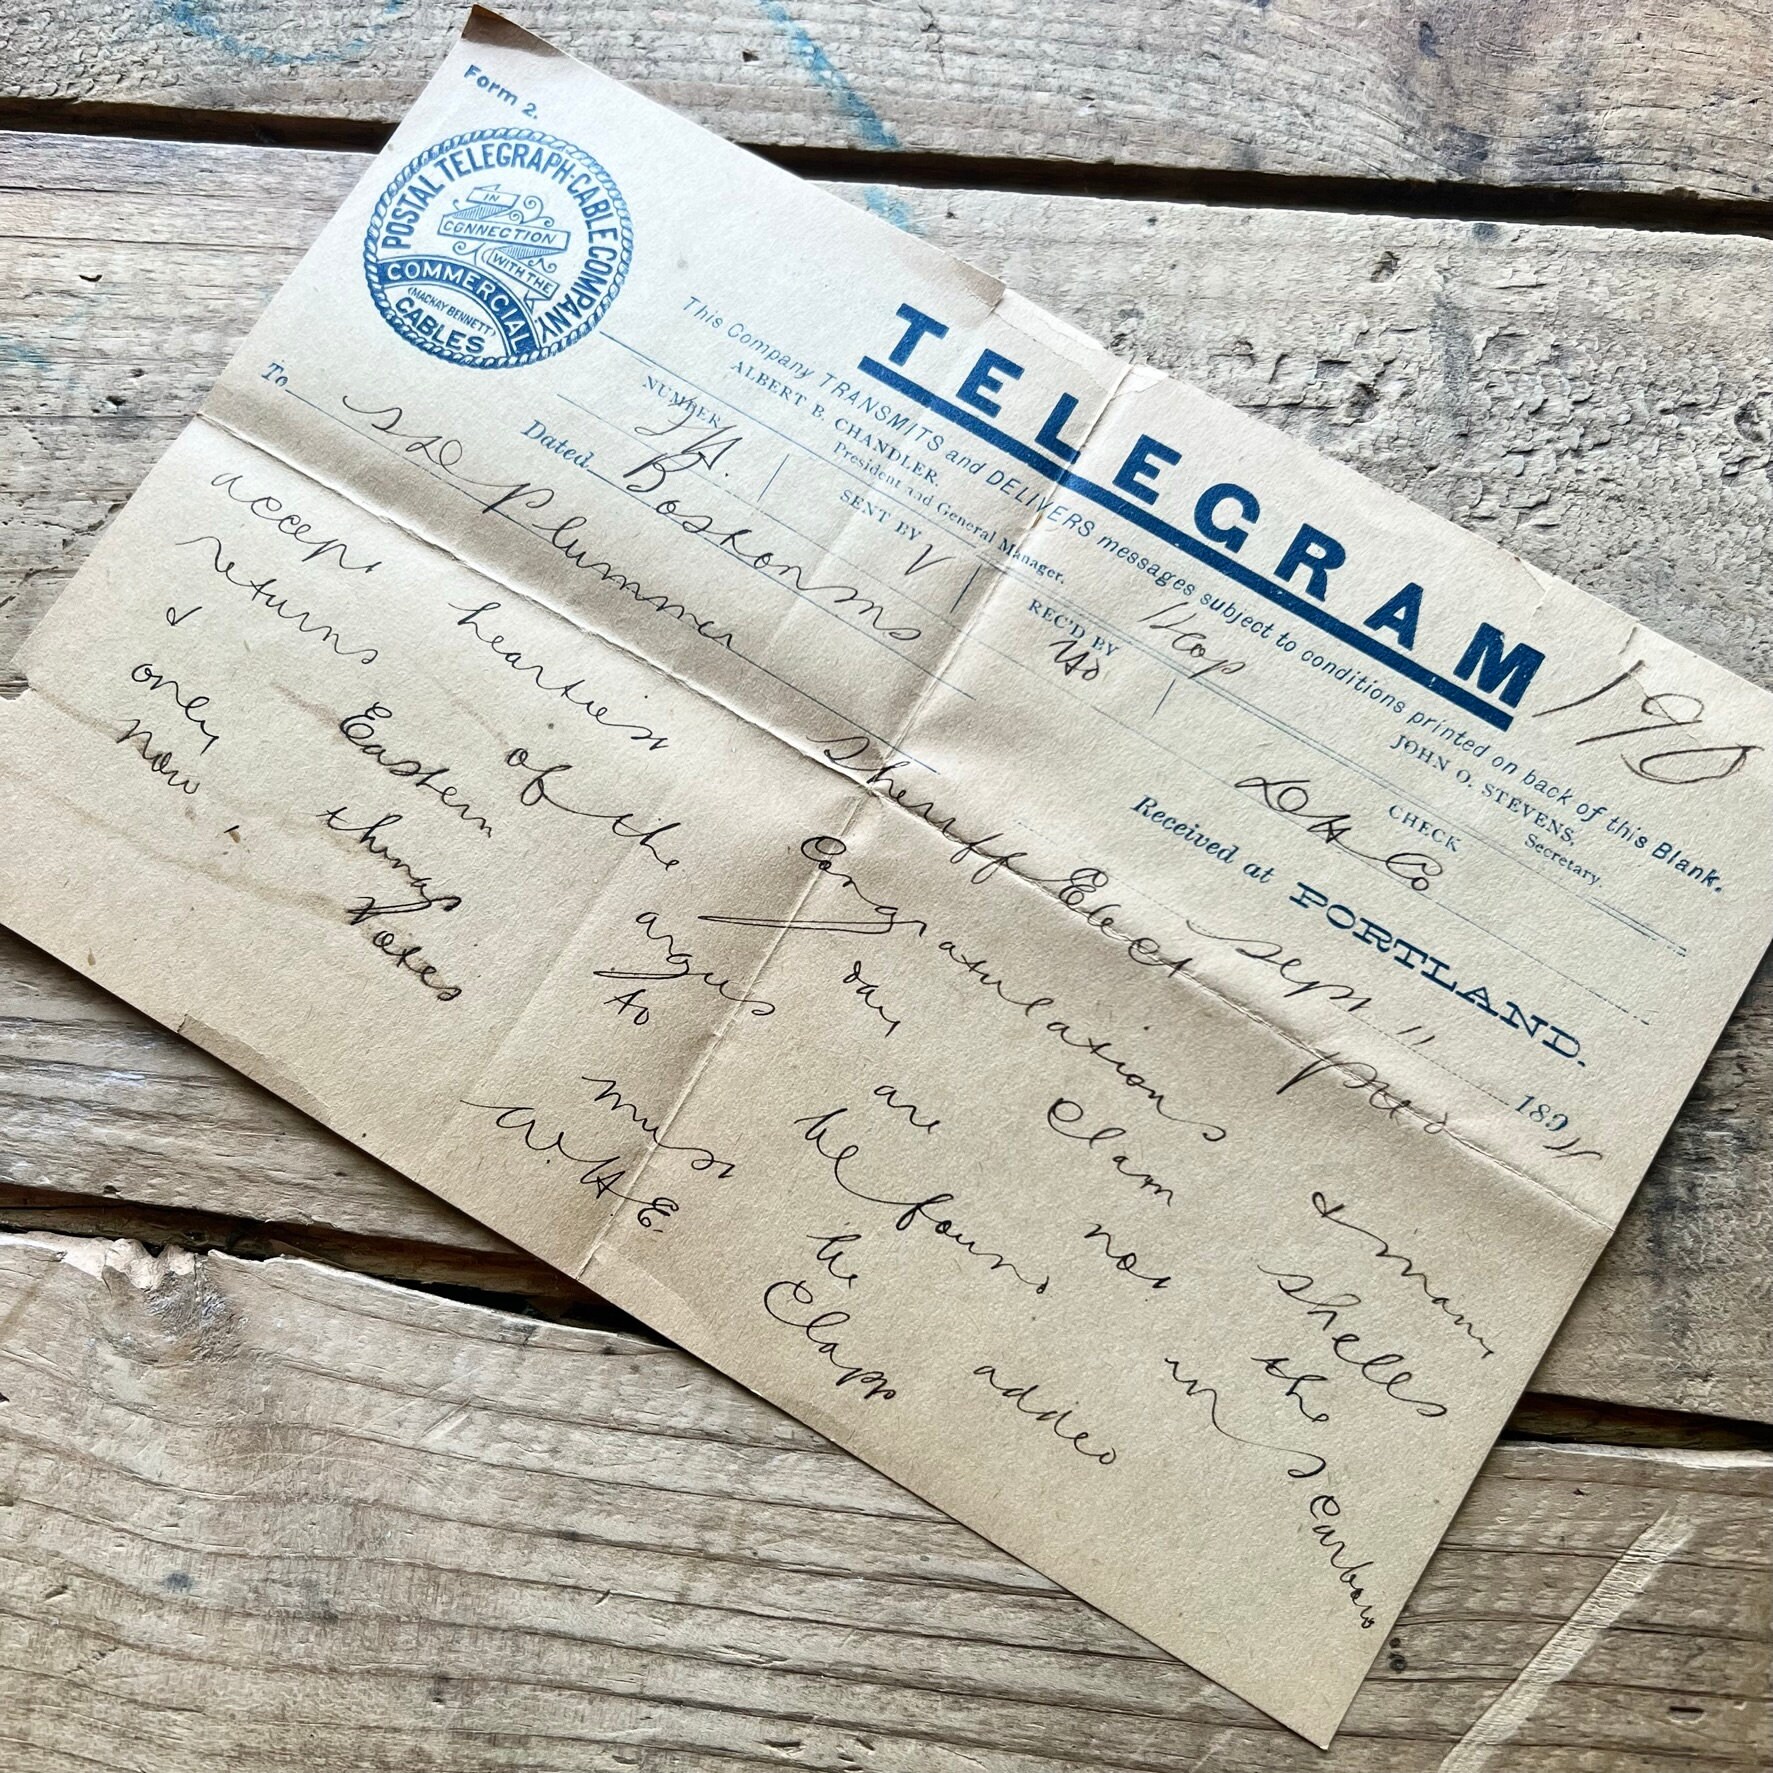 Form 2.
POSTAL TELEGRAPH-CABLE COMPANY
IN
CONNECTION
WITH THE
COMMERCIAL
(MACKAY BENNETT)
CABLES
TELEGRAM
190
This Company TRANSMITS and DELIVERS messages subject to conditions printed on back of this Blank.
ALBERT B. CHANDLER,
President and General Manager.
JOHN O. STEVENS,
Secretary.
NUMBER
SENT BY
REC'D BY
CHECK
V
Ho
DH Co
Received at PORTLAND.
Dated Boston ms
Sept 11 1894
To S D Plummer Sheriff Elect
accept heartiest Congratulations & many
returns of the day Clam shells
& Eastern argus are not the
only things to be found in Carbon
now Votes must be added
W.H.E. Clapp